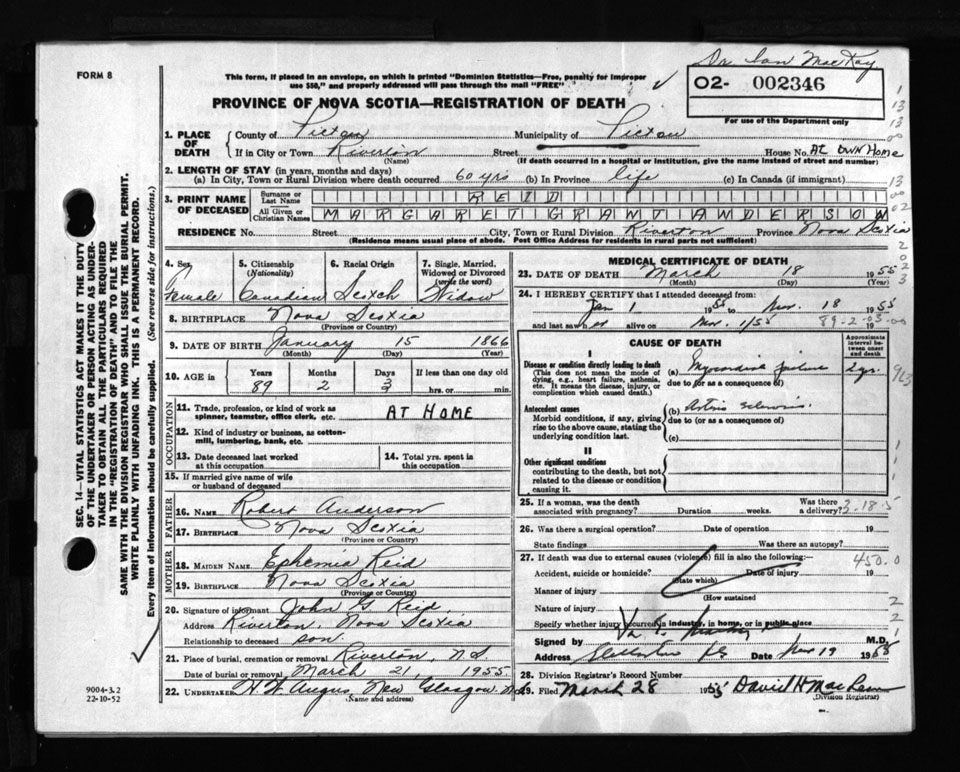 Dr Ian MacKay
FORM 8
This form, if placed in an envelope, on which is printed "Dominion Statistics—Free, penalty for improper
use $50," and properly addressed will pass through the mail "FREE"
02- 002346
For use of the Department only
PROVINCE OF NOVA SCOTIA—REGISTRATION OF DEATH
1. PLACE OF DEATH County of Pictou Municipality of Pictou
If in City or Town Riverton (Name) Street House No. At Own Home
(If death occurred in a hospital or institution, give the name instead of street and number)
2. LENGTH OF STAY (in years, months and days)
(a) In City, Town or Rural Division where death occurred 60 yrs (b) In Province life (c) In Canada (if immigrant)
3. PRINT NAME OF DECEASED Surname or Last Name REID
All Given or Christian Names MARGARET GRANT ANDERSON
RESIDENCE No. Street City, Town or Rural Division Riverton Province Nova Scotia
(Residence means usual place of abode. Post Office Address for residents in rural parts not sufficient)
4. Sex Female
5. Citizenship (Nationality) Canadian
6. Racial Origin Scotch
7. Single, Married, Widowed or Divorced (write the word) Widow
8. BIRTHPLACE Nova Scotia
(Province or Country)
9. DATE OF BIRTH January 15 1866
(Month) (Day) (Year)
10. AGE in Years 89 Months 2 Days 3 If less than one day old
hrs. or min.
OCCUPATION
11. Trade, profession, or kind of work as
spinner, teamster, office clerk, etc. AT HOME
12. Kind of industry or business, as cotton-
mill, lumbering, bank, etc.
13. Date deceased last worked
at this occupation
14. Total yrs. spent in
this occupation
15. If married give name of wife
or husband of deceased
FATHER
16. NAME Robert Anderson
17. BIRTHPLACE Nova Scotia
(Province or Country)
MOTHER
18. MAIDEN NAME Ephemia Reid
19. BIRTHPLACE Nova Scotia
(Province or Country)
20. Signature of informant John G Reid
Address Riverton, Nova Scotia
Relationship to deceased son.
21. Place of burial, cremation or removal Riverton, N.S.
Date of burial or removal March 21, 1955
22. UNDERTAKER H.W. Angus, New Glasgow, N.S.
(Name and address)
MEDICAL CERTIFICATE OF DEATH
23. DATE OF DEATH March 18 1955
(Month) (Day) (Year)
24. I HEREBY CERTIFY that I attended deceased from
Jan 1 1955 to Mar. 18 1955
and last saw her alive on Mar. 1/55 19
89-2-03-00
CAUSE OF DEATH
Approximate interval between onset and death
I
Disease or condition directly leading to death
(This does not mean the mode of
dying, e.g., heart failure, asthenia,
etc. It means the disease, injury, or
complication which caused death.)
(a) Myocardial failure 2 yrs.
due to (or as a consequence of)
Antecedent causes
Morbid conditions, if any, giving
rise to the above cause, stating the
underlying condition last.
(b) Arterio sclerosis.
due to (or as a consequence of)
(c)
II
Other significant conditions
contributing to the death, but not
related to the disease or condition
causing it.
25. If a woman, was the death
associated with pregnancy? Duration weeks. Was there
a delivery?
26. Was there a surgical operation? Date of operation 19
State findings Was there an autopsy?
27. If death was due to external causes (violence) fill in also the following:— 450.0
Accident, suicide or homicide? (State which) Date of injury 19
Manner of injury (How sustained
Nature of injury
Specify whether injury occurred in industry, in home, or in public place
Signed by M.D.
Address NS Date Mar 19 1955
28. Division Registrar's Record Number
29. Filed March 28 1955 David H MacLean
(Division Registrar)
SEC. 14—VITAL STATISTICS ACT MAKES IT THE DUTY
OF THE UNDERTAKER OR PERSON ACTING AS UNDER-
TAKER TO OBTAIN ALL THE PARTICULARS REQUIRED
IN THE "REGISTRATION OF DEATH" AND TO FILE THE
SAME WITH THE DIVISION REGISTRAR WHO SHALL ISSUE THE BURIAL PERMIT.
WRITE PLAINLY WITH UNFADING INK. THIS IS A PERMANENT RECORD.
Every item of information should be carefully supplied. (See reverse side for instructions.)
9004-3.2
22-10-52